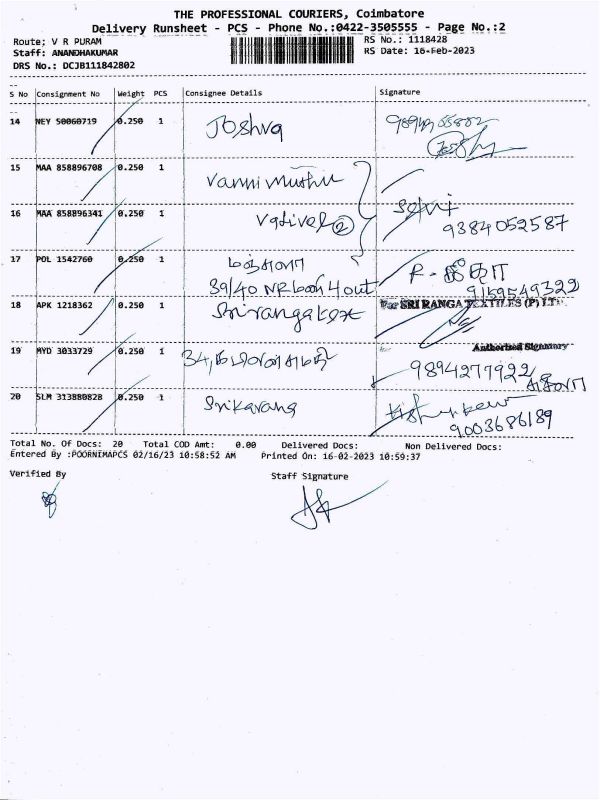 THE PROFESSIONAL COURIERS, Coimbatore
Delivery Runsheet - PCS - Phone No.:0422-3505555 - Page No.:2
Route; V R PURAM
RS No.: 1118428
Staff: ANANDHAKUMAR
RS Date: 16-Feb-2023
DRS No.: DCJB111842802
S No Consignment No Weight PCS Consignee Details Signature
14 NEY 50060719 0.250 1 Joshva
15 MAA 858896708 0.250 1 Vannimuthu
16 MAA 858896341 0.250 1 Vadivel 2 Selvi
9384052587
17 POL 1542760 0.250 1
9159549322
18 APK 1218362 0.250 1 For SRI RANGA TEXTILES (P) LTD
Authorised Signatory
19 MYD 3033729 0.250 1 34,
9894277922
20 SLM 313880828 0.250 1
9003686189
Total No. Of Docs: 20 Total COD Amt: 0.00 Delivered Docs: Non Delivered Docs:
Entered By :POORNIMAPCS 02/16/23 10:58:52 AM Printed On: 16-02-2023 10:59:37
Verified By
Staff Signature